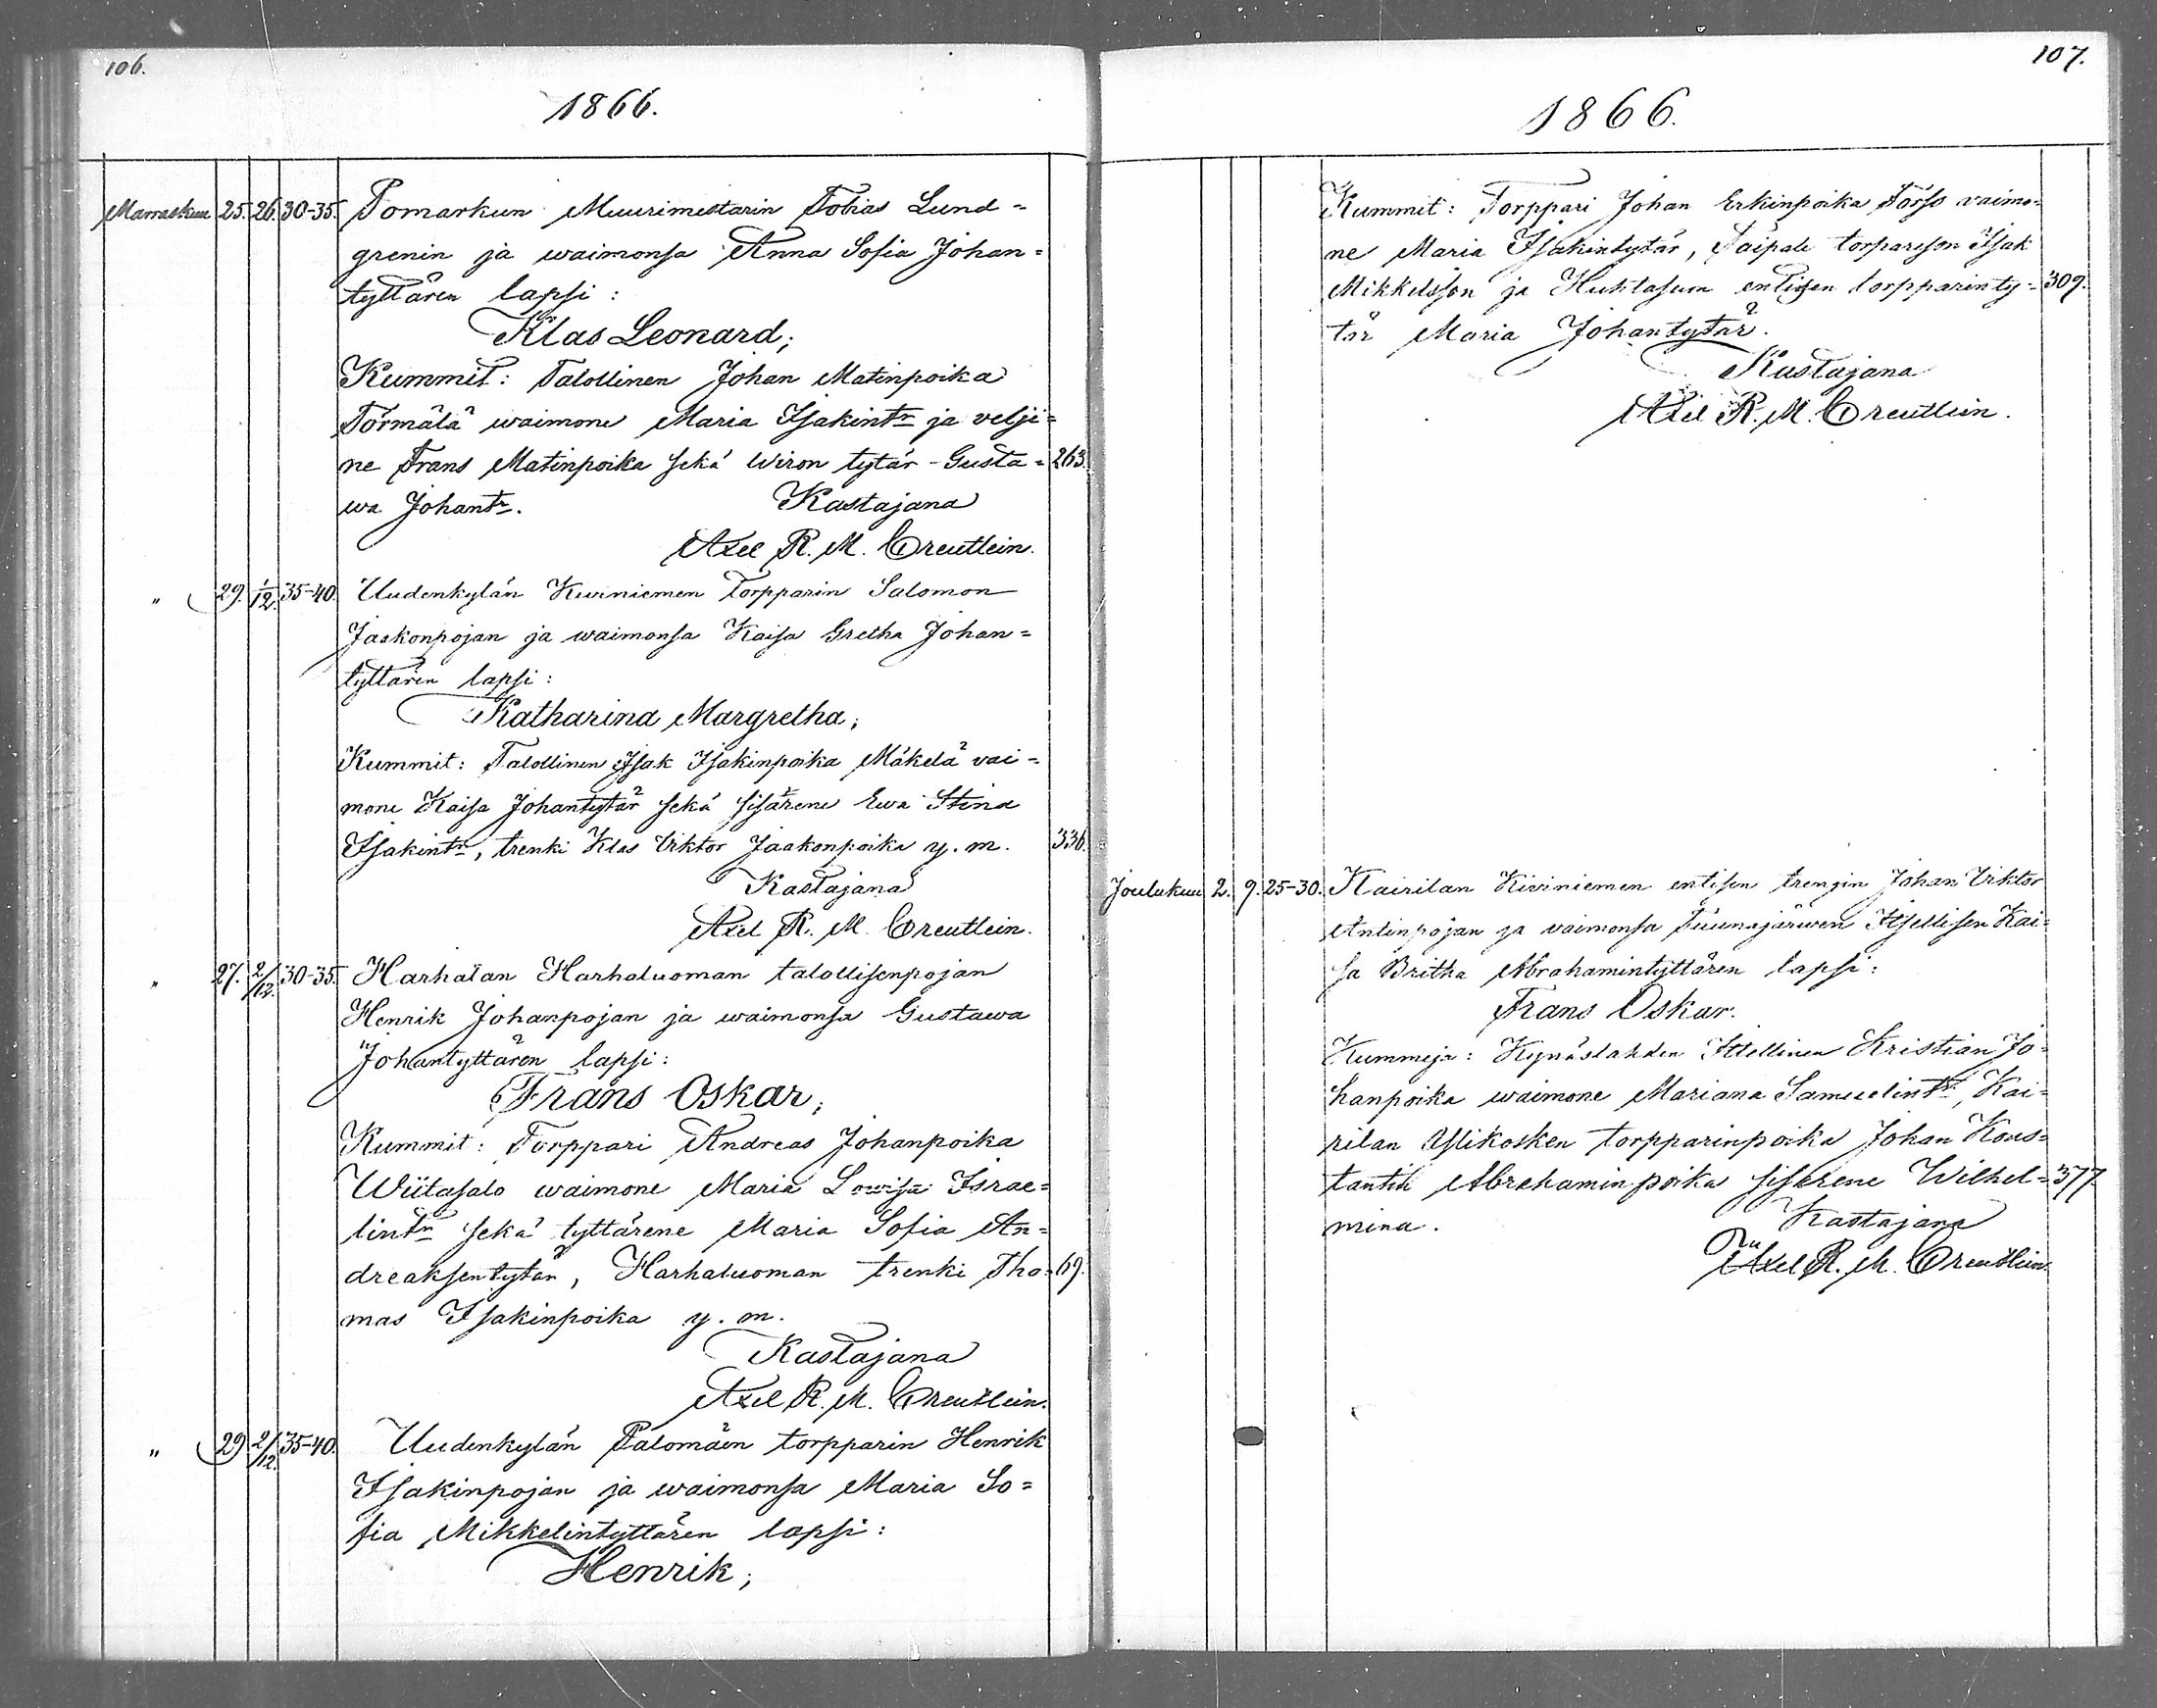 106.
1866.
Marraskuu 25. 26. 30-35. Pomarkun Muurimestarin Tobias Lund=
grenin ja waimonsa Anna Sofia Johan=
tyttären lapsi:
Klas Leonard;
Kummit: Talollinen Johan Matinpoika
Törmälä waimone Maria Isakintr ja velji=
ne Frans Matinpoika sekä Wiron tytär Gusta= 263.
wa Johantr. Kastajana
Axel R. M. Creutlein.
" 29. 1/12. 35-40. Uudenkylän Kuiniemen Torpparin Salomon
Jaakonpojan ja waimonsa Kaisa Gretha Johan=
tyttären lapsi:
Katharina Margretha;
Kummit: Talollinen Isak Isakinpoika Mäkelä vai=
mone Kaisa Johantytär sekä sisärene Ewa Stina
Isakintr, trenki Klas Viktor Jaakonpoika y. m. 336.
Kastajana
Axel R. M. Creutlein.
" 27. 2/12. 30-35. Harhalan Harhaluoman talollisenpojan
Henrik Johanpojan ja waimonsa Gustawa
Johantyttären lapsi:
Frans Oskar;
Kummit: Torppari Andreas Johanpoika
Wiitasalo waimone Maria Lowisa Israe=
lintr sekä tyttärene Maria Sofia An=
dreaksentytär, Harhaluoman trenki Tho= 69.
mas Isakinpoika y. m.
Kastajana
Axel R. M. Creutlein.
" 29 2/12. 35-40. Uudenkylän Palomäen torpparin Henrik
Isakinpojan ja waimonsa Maria So=
fia Mikkelintyttären lapsi:
Henrik;
107.
1866.
Kummit: Torppari Johan Erkinpoika Torso vaimo=
ne Maria Isakintytär, Taipale torpareson Isak
Mikkelsson ja Huhtasuon entisen torpparinty= 309.
tär Maria Johantytär.
Kastajana
Axel R. M. Creutlein.
Joulukuu 2. 9. 25-30. Kairilan Kiviniemen entisen trengin Johan Viktor
Antinpojan ja vaimonsa Tuunajärwen Itsellisen Kai=
sa Britha Abrahamintyttären lapsi:
Frans Oskar.
Kummeja: Kynäslahden Ittellinen Kristian Jo=
hanpoika waimone Mariana Samuelintr, Kai=
rilan Ylikosken torpparinpoika Johan Kons=
tantin Abrahaminpoika sisarene Wilhel= 377.
mina. Kastajana
Axel R. M. Creutlein.